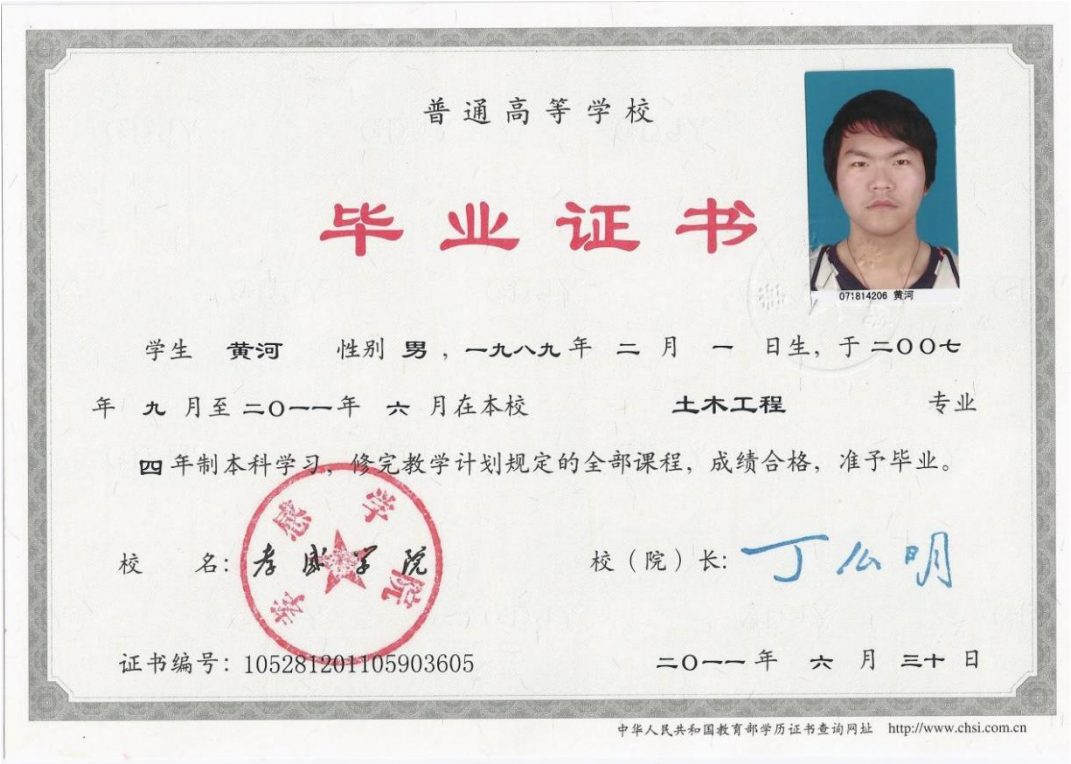 普通高等学校
毕业证书
071814206 黄河
学生 黄河 性别 男，一九八九年 二 月 一 日生，于二〇〇七
年 九 月至二〇一一年 六 月在本校 土木工程 专业
四年制本科学习，修完教学计划规定的全部课程，成绩合格，准予毕业。
校 名：孝感学院
孝感学院
校（院）长：丁么明
证书编号：105281201105903605
二〇一一年 六 月 三十 日
中华人民共和国教育部学历证书查询网址 http://www.chsi.com.cn